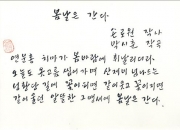 봄날은 간다.
손로원 작사
박시춘 작곡
연분홍 치마가 봄바람에 휘날리더라
오늘도 옷고름 씹어가며 산제비 넘나드는
성황당 길에 꽃이 피면 같이 웃고 꽃이 지면
같이 울던 알뜰한 그 맹세에 봄날은 간다.